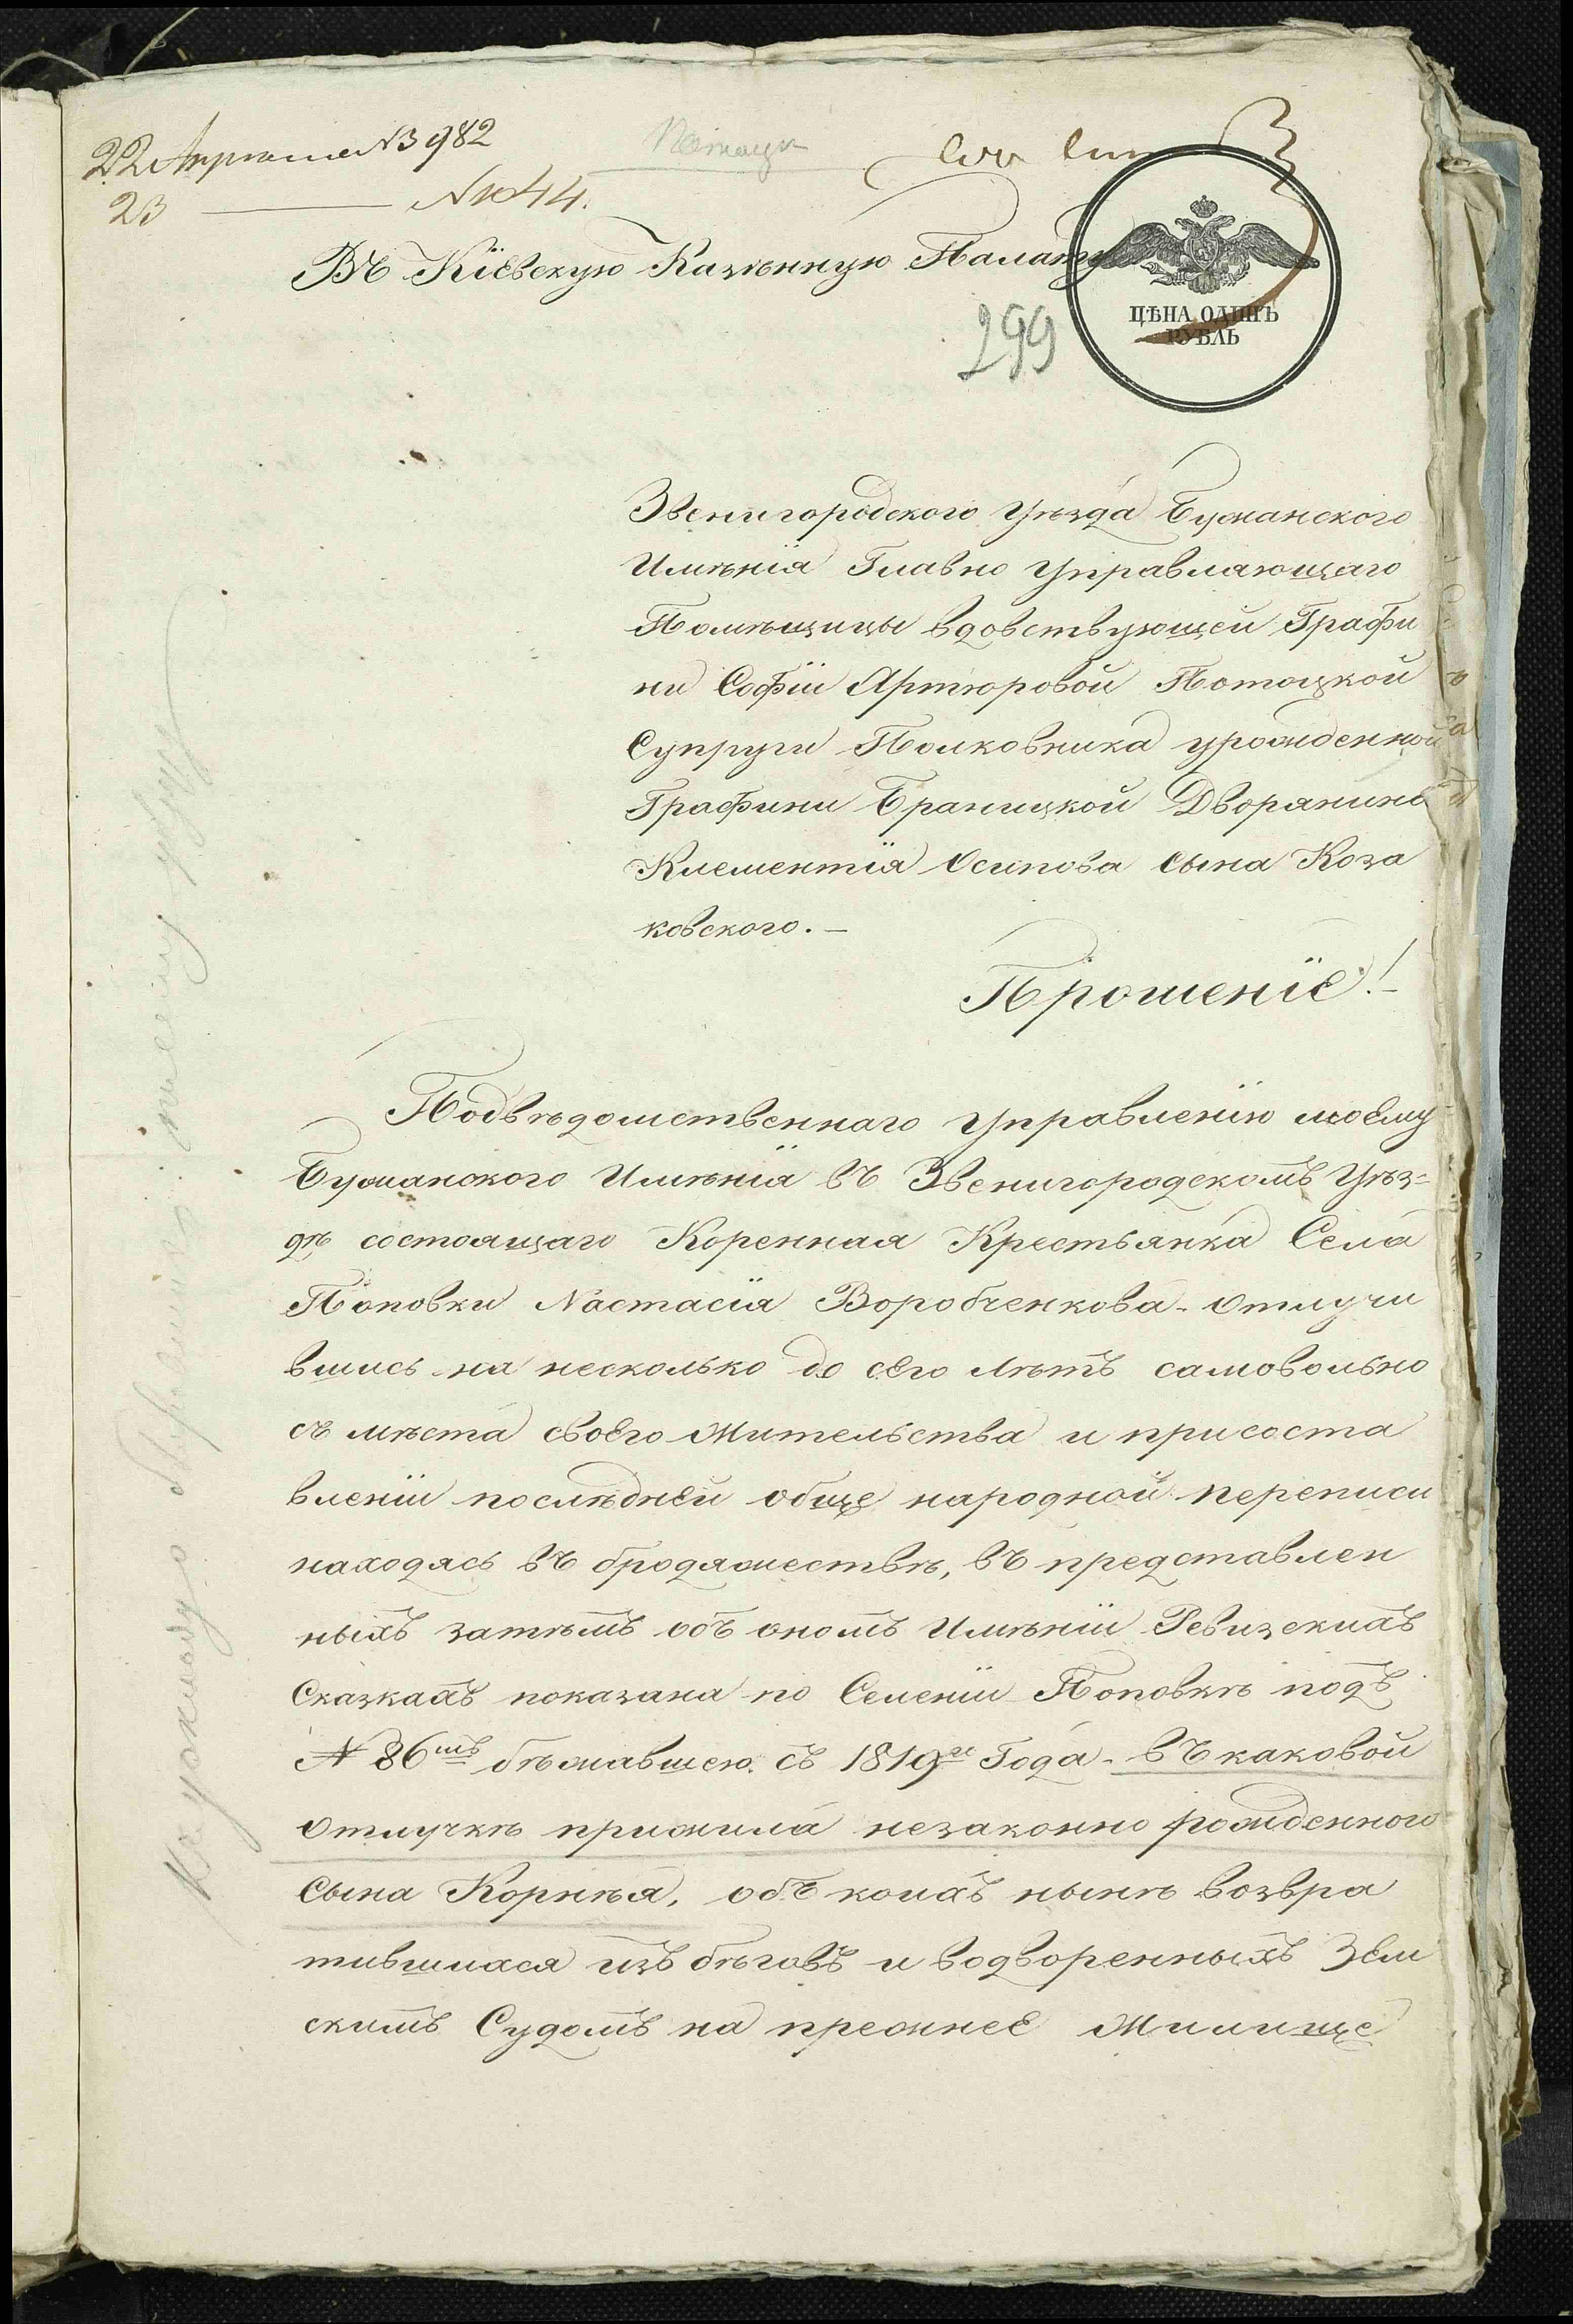 22 Апреля № 3982
23 — № 1044.
Въ Кіевскую Казенную Палату
ЦѢНА ОДИНЪ
РУБЛЬ
299
Звенигородского уѣзда Бужанского
Имѣнія Главно Управляющаго
Помѣщицы вдовствующей Графи
ни Софіи Артюровой Потоцкой
Супруги Полковника урожденной
Графини Браницкой Дворянина
Клементія Осипова сына Коза
ковского. —
Прошеніе! —
Подвѣдомственнаго Управленію моему
Бужанского Имѣнія въ Звенигородскомъ Уѣз=
дѣ состоящаго Коренная Крестьянка Села
Поповки Настасія Воробченкова - отлучи
вшись на несколько до сего лѣтъ самовольно
съ мѣста своего жительства и присоста
вленіи послѣдней обще народной переписи
находясь въ бродяжествѣ, въ представлен
ныхъ затѣмъ объ ономъ Имѣніи Ревизскихъ
Сказкахъ показана по Селеніи Поповкѣ подъ
№ 86мъ бѣжавшею съ 1819го Года - въ каковой
отлучкѣ прижила незаконно рожденного
сына Корнѣя, объ коихъ нынѣ возвра
тившихся изъ бѣговъ и водворенныхъ Зем
скимъ Судомъ на прежнее Жилище